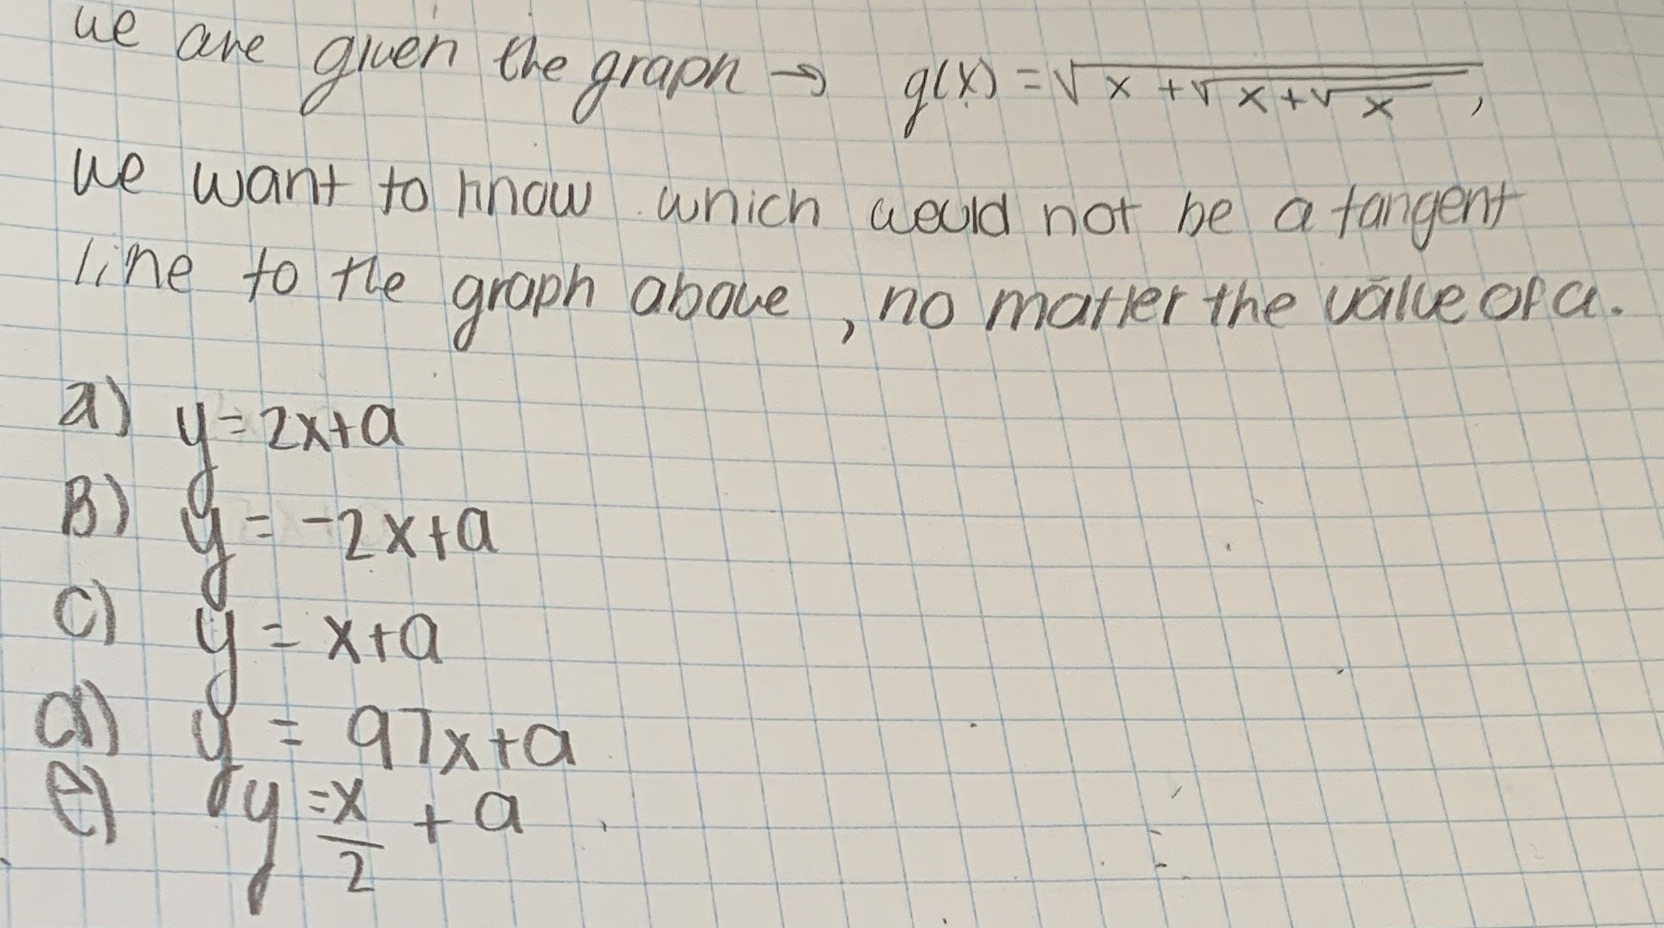 we are given the graph → g(x) = √(x + √(x + √x)),
we want to know which would not be a tangent
line to the graph above, no matter the value of a.
a) y = 2x+a
B) y = -2x+a
c) y = x+a
d) y = 97x+a
e) y = x/2 + a